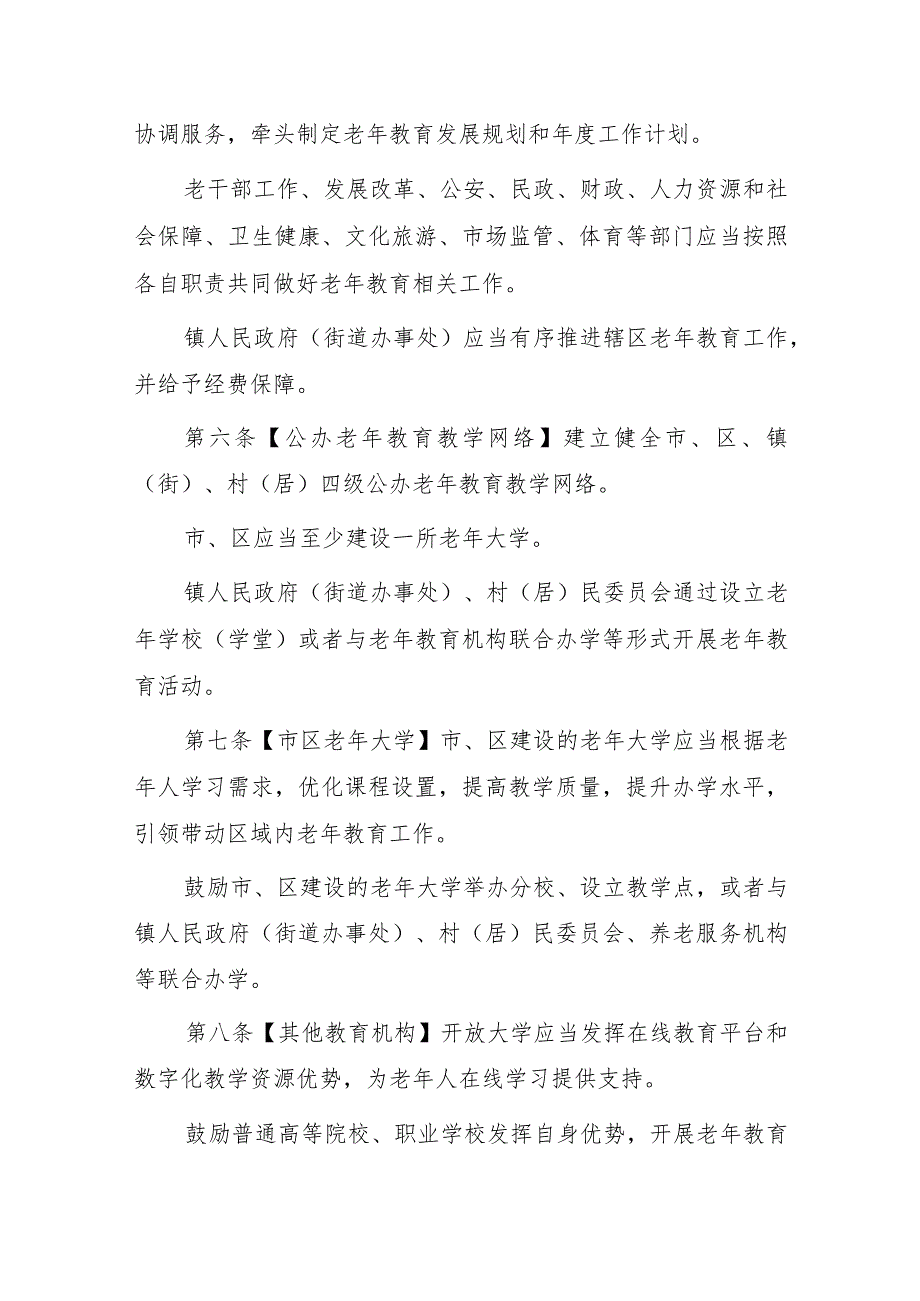 协调服务，牵头制定老年教育发展规划和年度工作计划。
老干部工作、发展改革、公安、民政、财政、人力资源和社
会保障、卫生健康、文化旅游、市场监管、体育等部门应当按照
各自职责共同做好老年教育相关工作。
镇人民政府（街道办事处）应当有序推进辖区老年教育工作，
并给予经费保障。
第六条【公办老年教育教学网络】建立健全市、区、镇
（街）、村（居）四级公办老年教育教学网络。
市、区应当至少建设一所老年大学。
镇人民政府（街道办事处）、村（居）民委员会通过设立老
年学校（学堂）或者与老年教育机构联合办学等形式开展老年教
育活动。
第七条【市区老年大学】市、区建设的老年大学应当根据老
年人学习需求，优化课程设置，提高教学质量，提升办学水平，
引领带动区域内老年教育工作。
鼓励市、区建设的老年大学举办分校、设立教学点，或者与
镇人民政府（街道办事处）、村（居）民委员会、养老服务机构
等联合办学。
第八条【其他教育机构】开放大学应当发挥在线教育平台和
数字化教学资源优势，为老年人在线学习提供支持。
鼓励普通高等院校、职业学校发挥自身优势，开展老年教育